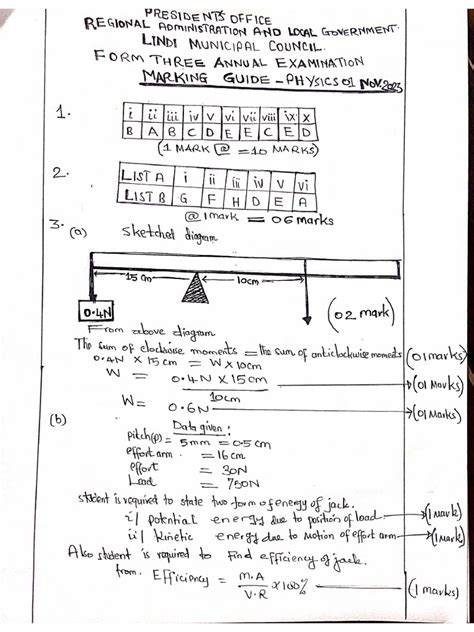 PRESIDENTS OFFICE
REGIONAL ADMINISTRATION AND LOCAL GOVERNMENT.
LINDI MUNICIPAL COUNCIL.
FORM THREE ANNUAL EXAMINATION
MARKING GUIDE - PHYSICS 01 NOV 2023
1.
i ii iii iv v vi vii viii ix x
B A B C D E E C E D
(1 MARK @ = 10 MARKS)
2.
LIST A i ii iii iv v vi
LIST B G F H D E A
@ 1mark = 06 marks
3. (a) Sketched diagram
15 cm 10cm
0.4N
(02 mark)
From above diagram
The sum of clockwise moments = the sum of anticlockwise moments (01 marks)
0.4N X 15 cm = W X 10cm
W = 0.4N X 15 cm → (01 Marks)
10cm
W = 0.6N → (01 Marks)
(b) Data given:
pitch(p) = 5mm = 0.5 cm
effort arm = 16cm
effort = 30N
Load = 750N
student is required to state two form of energy of jack.
i/ potential energy due to position of load → (1 mark)
ii/ kinetic energy due to motion of effort arm → (1 mark)
Also student is required to Find efficiency of jack.
from. Efficiency = M.A X 100% (1 marks)
V.R